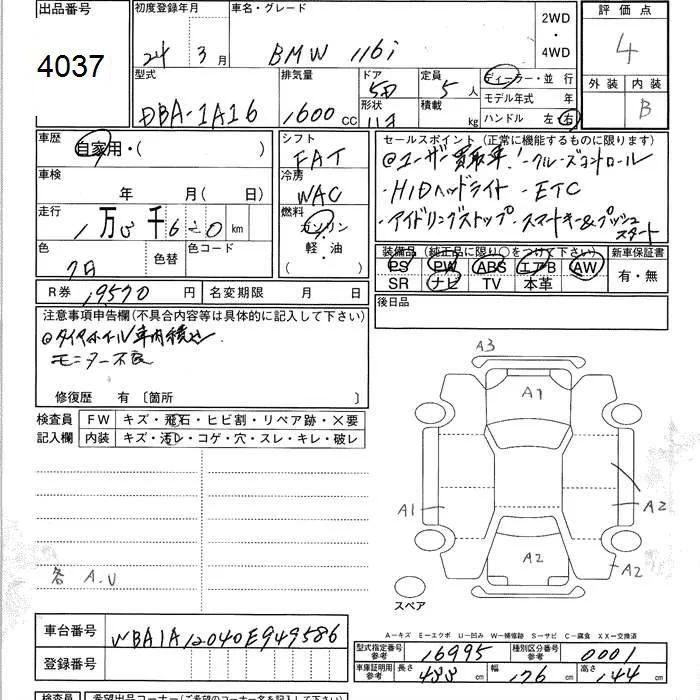 出品番号
4037
初度登録年月
24 年 3 月
車名・グレード
BMW 116i
2WD
・
4WD
評価点
4
外装 内装
B
型式
DBA-1A16
排気量
1600 CC
ドア
5D
形状
定員
5 人
積載
kg
ディーラー・並 行
モデル年式 年
ハンドル 左 右
車歴
自家用・( )
車検
年 月( 日)
走行
1 万 千 6 0 km
色
色替
色コード
シフト
FAT
冷房
WAC
燃料
ガソリン
・
軽・油
( )
セールスポイント (正常に機能するものに限ります)
◎ユーザー買取車! ・クルーズコントロール
・HIDヘッドライト ・ETC
・アイドリングストップ ・スマートキー&プッシュ
スタート
装備品 (純正品に限り○をつけて下さい)
PS PW ABS エアB AW
SR ナビ TV 本革
新車保証書
有・無
後日品
R券 19570 円
名変期限 月 日
注意事項申告欄(不具合内容等は具体的に記入して下さい)
◎タイヤホイール車内積込
モニター不良
修復歴 有〔箇所 〕
検査員
記入欄
FW キズ・飛石・ヒビ割・リペア跡・×要
内装 キズ・汚レ・コゲ・穴・スレ・キレ・破レ
各 A.U
A3
A1
A1
A2
A2
A2
スペア
車台番号 WBA1A12040E949586
登録番号
A-キズ E-エクボ U-凹み W-補修跡 S-サビ C-腐食 XX-交換済
型式指定番号
参考
16995
種別区分番号
参考
0001
車庫証明用
参考
長さ 433 cm
幅 176 cm
高さ 144 cm
検査員
希望出品コーナー(ご希望のコーナー名を記入して下さい)